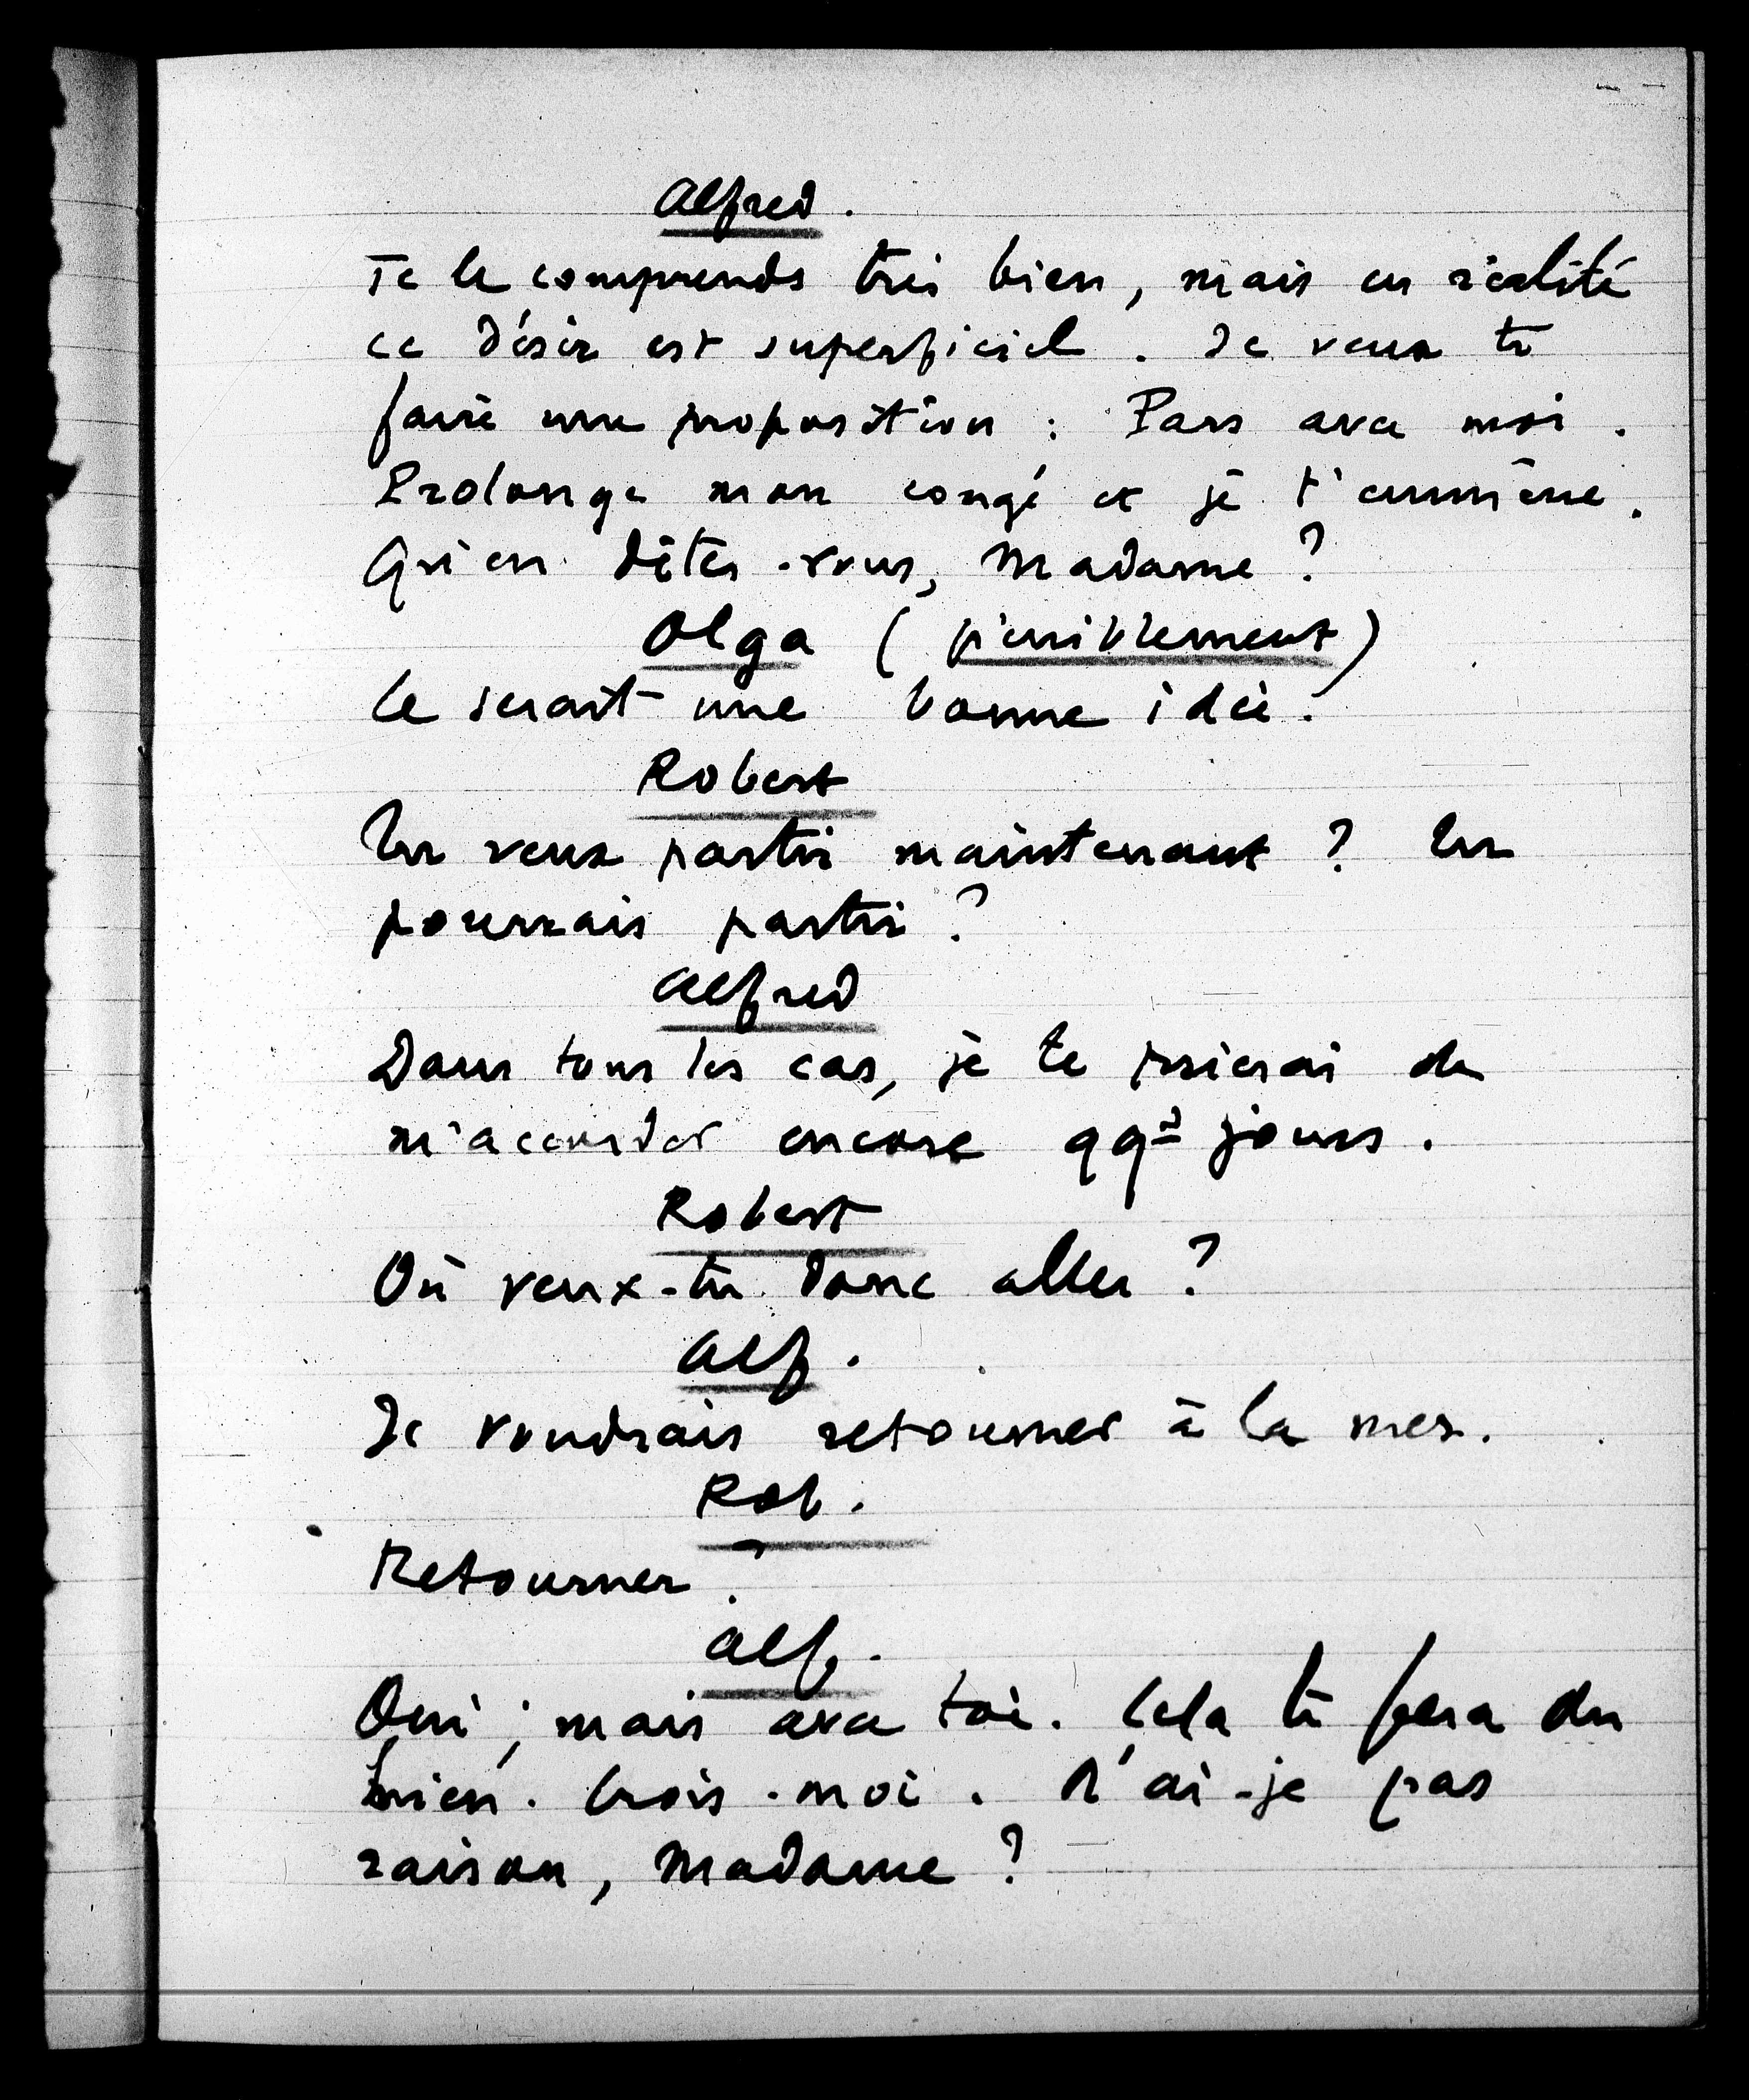 Alfred.
Je le comprends très bien, mais en réalité
ce désir est superficiel. Je veux te
faire une proposition : Pars avec moi.
Prolonge mon congé et je t'emmène.
Qu'en dîtes-vous, Madame ?
Olga (péniblement)
Ce serait une bonne idée.
Robert
Tu veux partir maintenant ? Tu
pourrais partir ?
Alfred
Dans tous les cas, je te prierai de
m'accorder encore qqs jours.
Robert
Où veux-tu donc aller ?
Alf.
Je voudrais retourner à la mer.
Rob.
Retourner ?
Alf.
Oui ; mais avec toi. Cela te fera du
bien. Crois-moi. N'ai-je pas
raison, Madame ?